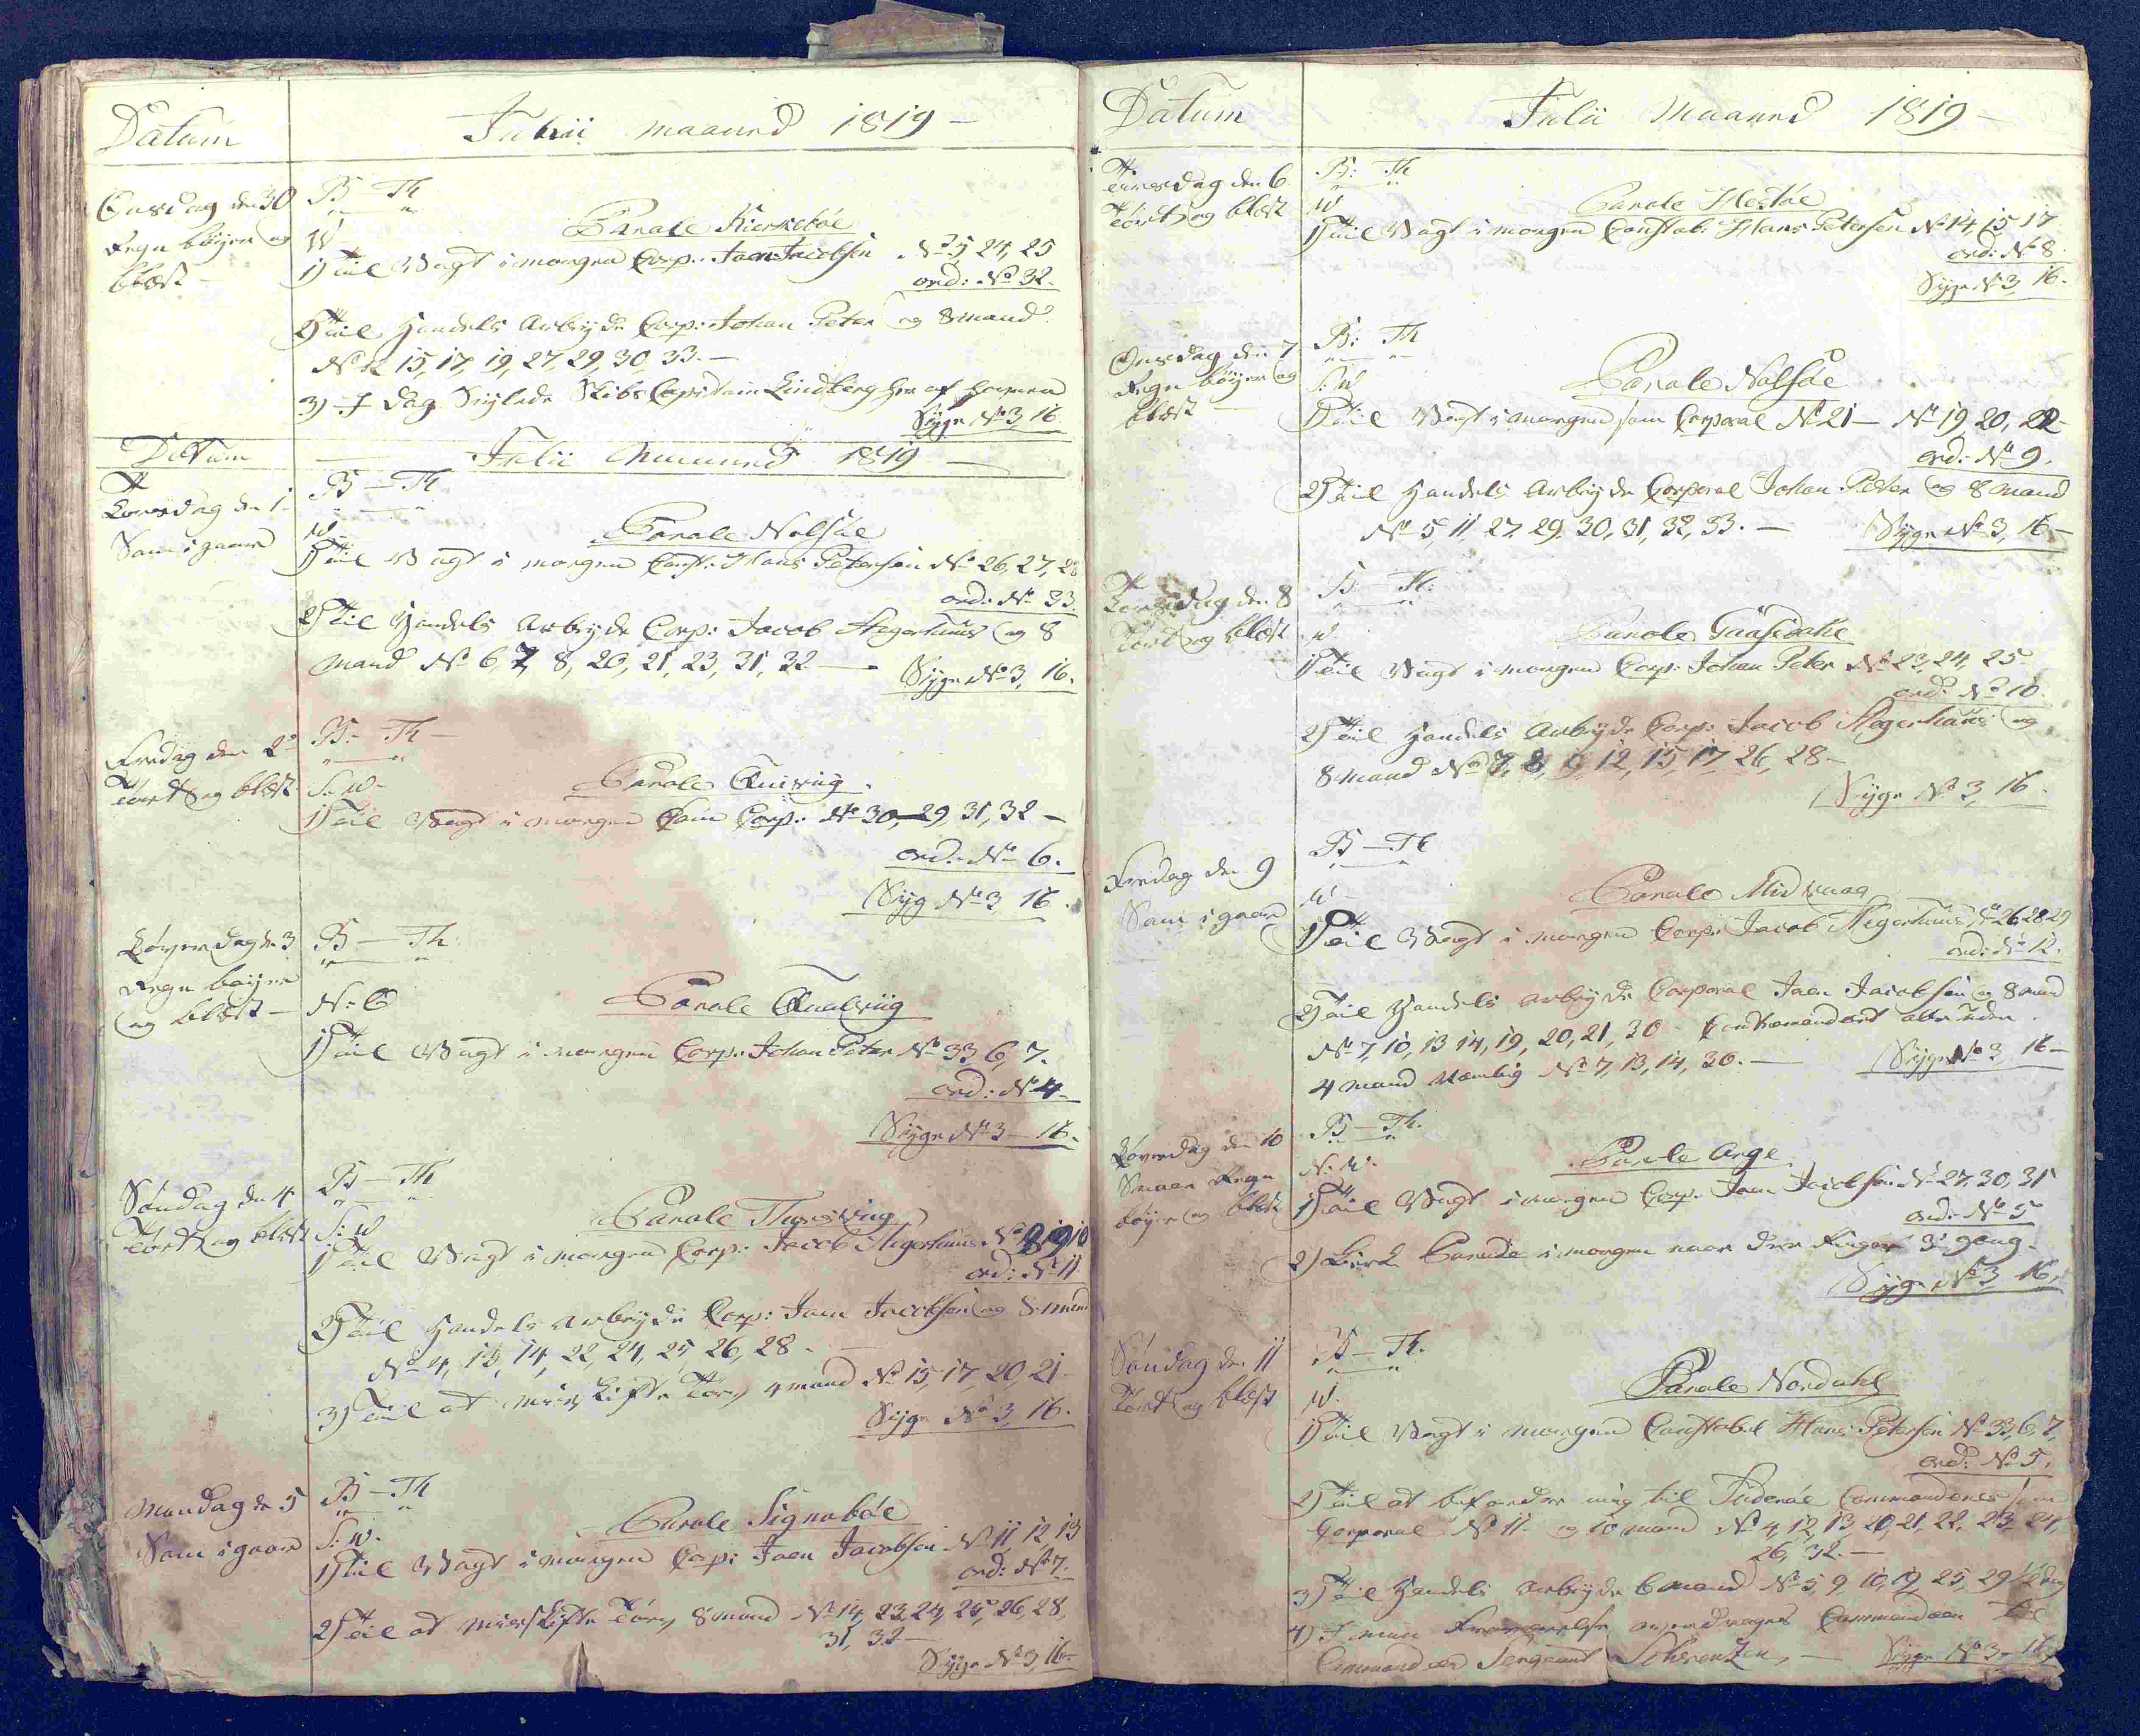 Datum
Junii maaned 1819 –
Onsdag den 30
Regn böyer og
blæst –
B – Th
W
Parole Kirkebøe
1) Til Vagt i morgen Corp: Joen Jacobsen No 5 24, 25
ord: No 32.
2) Til Handels Arbeyde Corp: Johan Peter og 8 mand
No 12 15, 17, 19, 27, 29, 30, 33. –
3) I dag Seylede Skibs Capitain Lindberg her af havnen
Syge No 3, 16.
Datum
Julii Maaned 1819 –
Torsdag den 1
Som i gaar
B – Th
W
Parole Nolsøe
1) Til Vagt i morgen Const: Hans Petersen No 26, 27, 28
ord: No 33.
2) Til Handels Arbeyde Corp: Jacob Stegerhuus og 8
mand No 6, 7, 8, 20, 21, 23, 31, 32 –
Syge No 3, 16.
Fredag den 2
Tört og blæst
B – Th –
S: W.
Parole Quivig.
1) Til Vagt i morgen som Corp: No 30, 29 31, 32 –
ord: No 6.
Syg No 3, 16.
Löverdag d: 3
Regn böyer
og blæst –
B – Th:
N: O
Parole Qualviig
1) Til Vagt i morgen Corp: Johan Peter No 33 6, 7.
ord: No 4.
Syge No 3 – 16.
Söndag d: 4
Tört og blæst
B – Th
S: W
Parole Thorsvig
1) Til Vagt i morgen Corp: Jacob Stegerhuus No 8, 9 10
ord: No 11
2) Til Handels Arbeyde Corp: Joen Jacobsen og 8 mand
No 4, 13, 14, 22, 24, 25, 26, 28 –
3) Til at Törv 4 mand No 15, 17, 20, 21 –
Syge No 3, 16.
Mandag d: 5
Som i gaar
B – Th
S: W.
Parole Signabøe
1) Til Vagt i morgen Corp: Joen Jacobsen No 11, 12, 13
ord: No 7.
2) Til at Törv 8 mand No 14, 23, 24, 25, 26, 28,
31, 32 –
Syge No 3, 16 –
Datum
Julii Maaned 1819 –
Tirsdag den 6
Tört og blæst
B: Th
W
Parole Hestøe
1) Til Vagt i morgen Constab: Hans Petersen No 14, 15 17
ord: No 8.
Syge No 3, 16.
Onsdag den 7
Regn böyer og
blæst –
B: Th
S: W
Parole Nolsøe
1) Til Vagt i morgen som Corporal No 21 – No 19 20, 22 –
ord: No 9.
2) Til Handels Arbeyde Corporal Johan Peter og 8 mand
No 5, 11, 27, 29, 30, 31, 32, 33. –
Syge No 3, 16 –
Torsdag den 8
Tört og blæst
B – Th:
W
Parole Gaasedahl
1) Til Vagt i morgen Corp: Johan Peter No 23, 24, 25 –
ord: No 10.
2) Til Handels Arbeyde Corp: Jacob Stegerhuus og
8 mand No 7, 8, 9, 12, 15, 17, 26, 28 –
Syge No 3, 16.
Fredag den 9
Som i gaar
B – Th
W –
Parole Midvaag
1) Til Vagt i morgen Corp: Jacob Stegerhuus No 26 28 29
ord: No 12.
2) Til Handels Arbeyde Corporal Joen Jacobsen og 8 mand
No 7, 10, 13 14, 19, 20, 21, 30 –
4 mand No 7, 13, 14, 30. –
Syge No 3, 16 –
Löverdag den 10
Smaae Regn
böyer og blæst
B – Th.
N: W.
Parole Arge
1) Til Vagt i morgen Corp: Joen Jacobsen No 27, 30, 31
ord: No 5
2) Kirk Parade i morgen naar der Ringes 3die gang.
Syge No 3, 16.
Söndag d: 11
Tört og blæst
B – Th.
W.
Parole Nordahl
1) Til Vagt i morgen Constabel Hans Petersen No 33, 6, 7,
ord: No 5.
2) Til at befordre mig til Suderøe Commanderes som
Corporal No 11 – og 10 mand No 4, 12, 13 20, 21, 22, 23, 24,
26, 32. –
3) Til Handels Arbeyde 6 mand No 5, 9 10, 19, 25, 29 1/2 dag
4) I min Fraværelse overdrages Commandoen til
Sergeant –
Syge No 3 – 16.